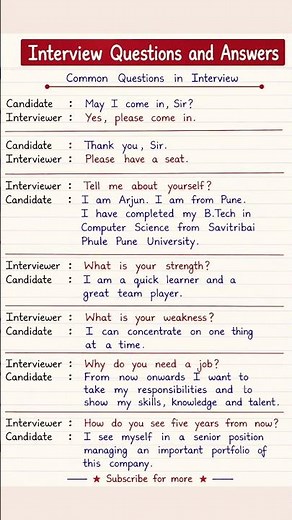 Interview Questions and Answers
Common Questions in Interview
Candidate : May I come in, Sir?
Interviewer : Yes, please come in.
Candidate : Thank you, Sir.
Interviewer : Please have a seat.
Interviewer : Tell me about yourself?
Candidate : I am Arjun. I am from Pune.
I have completed my B.Tech in
Computer Science from Savitribai
Phule Pune University.
Interviewer : What is your strength?
Candidate : I am a quick learner and a
great team player.
Interviewer : What is your weakness?
Candidate : I can concentrate on one thing
at a time.
Interviewer : Why do you need a job?
Candidate : From now onwards I want to
take my responsibilities and to
show my skills, knowledge and talent.
Interviewer : How do you see five years from now?
Candidate : I see myself in a senior position
managing an important portfolio of
this company.
Subscribe for more